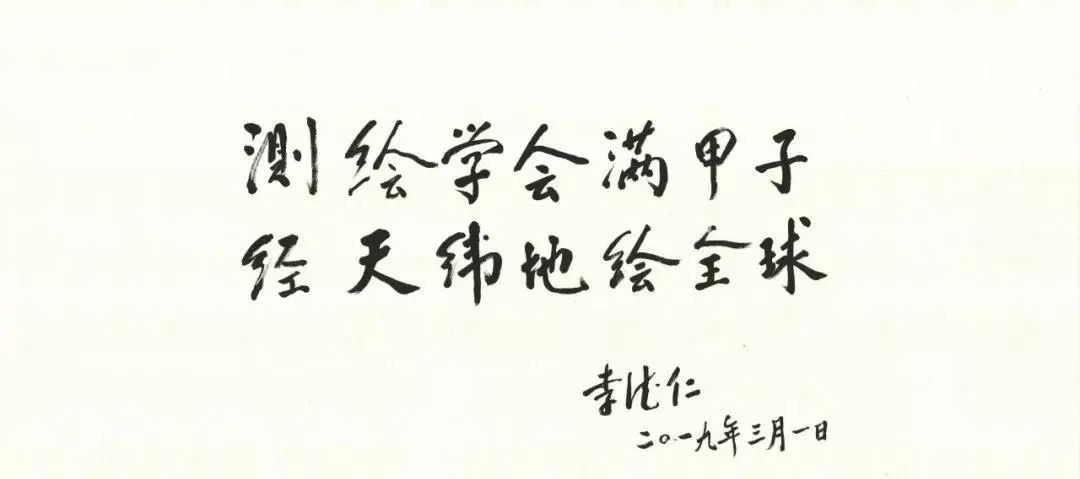 测绘学会满甲子
经天纬地绘全球
李德仁
二〇一九年三月一日